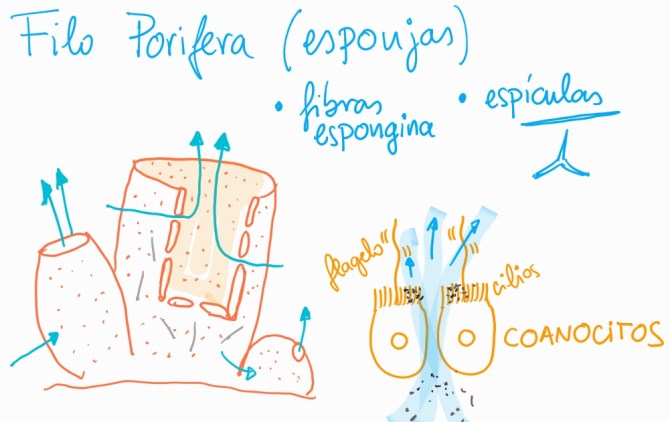 Filo Porifera (esponjas)
• fibras
espongina
• espículas
flagelo
cilios
COANOCITOS